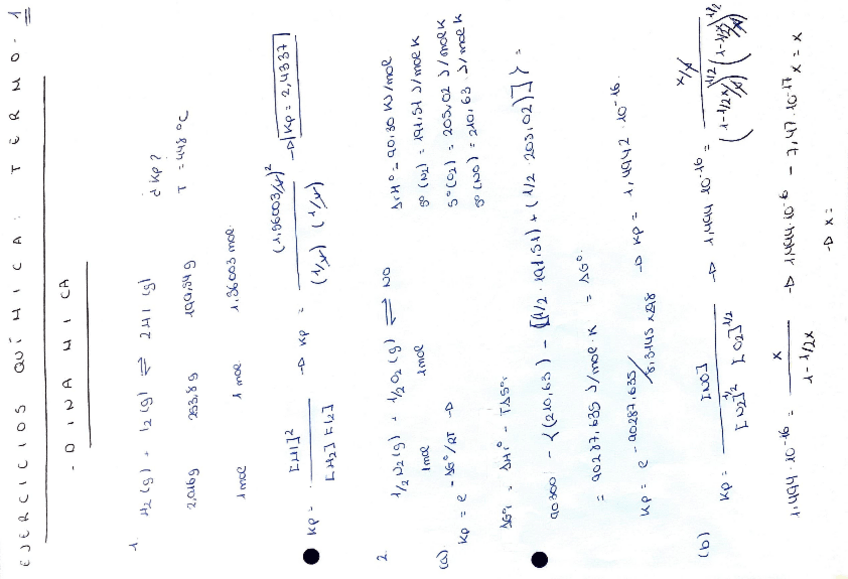 EJERCICIOS QUÍMICA: TERMO- 1
- DINAMICA
1 H₂ (g) + I₂ (g) ⇌ 2HI (g) ¿Kp?
2,016g 253,8g 190,94g T = 448 °C
1 mol 1 mol 1.36003 mol.
Kp = [HI]² / [H₂] [I₂] → Kp = (1.36003/V)² / (1/V) (1/V) → Kp = 2,4337
2 1/2 N₂ (g) + 1/2 O₂ (g) ⇌ NO ΔrH° = 90.30 KJ/mol
1 mol 1 mol S° (N₂) = 191,51 J/mol K
(a) Kp = e - ΔG°/RT → S° (O₂) = 205,02 J/mol K
S° (NO) = 210,63 J/mol K
ΔG°r = ΔH° - TΔS°r
90300 - {(210,63) - [(1/2 · 191.51) + (1/2 205,02)]} =
= 90287,635 J/mol·K = ΔG°.
Kp = e - 90287,635/8,3145 x 298 → Kp = 1,4942 · 10⁻¹⁶.
(b) Kp = [NO] / [N₂]^1/2 [O₂]^1/2 → 1,494 10⁻¹⁶ = x/V / (1-1/2x/V)^1/2 (1-1/2x/V)^1/2
1,494 · 10⁻¹⁶ = x / 1-1/2x → 1,494·10⁻¹⁶ - 7,47·10⁻¹⁷ x = x
→ x =